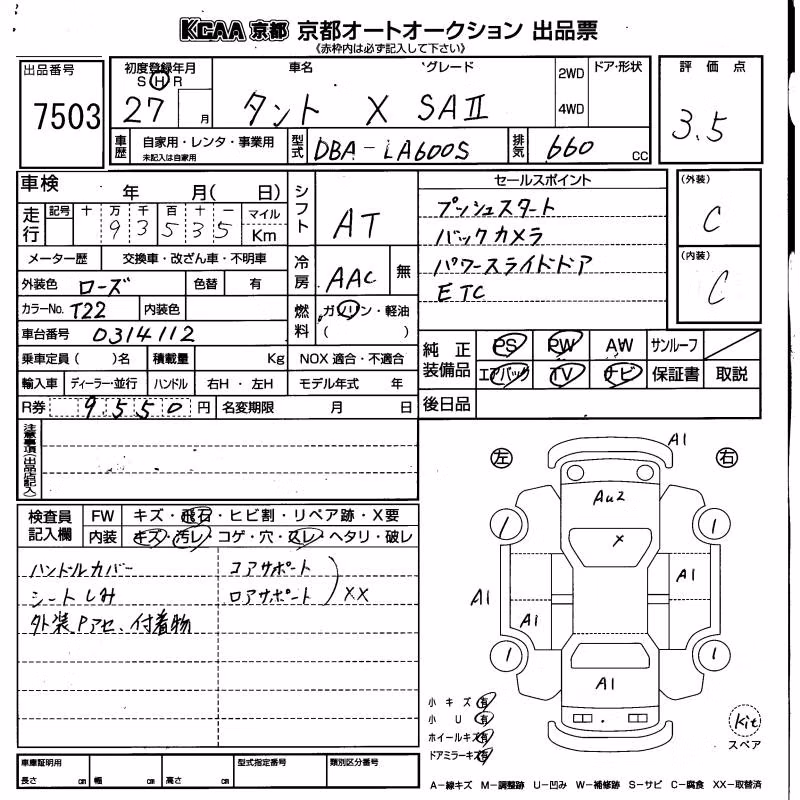 KCAA 京都 京都オートオークション 出品票
《赤枠内は必ず記入して下さい》
出品番号
7503
初度登録年月
S H R
27 月
車名
グレード
タント X SAⅡ
2WD
4WD
ドア・形状
評価点
3.5
車歴
自家用・レンタ・事業用
未記入は自家用
型式
DBA-LA600S
排気
660 CC
車検 年 月( 日)
走行
記号 十 万 千 百 十 一 マイル
93535 Km
メーター歴 交換車・改ざん車・不明車
外装色 ローズ 色替 有
カラーNo. T22 内装色
車台番号 0314112
乗車定員 ( )名 積載量 Kg NOX 適合・不適合
輸入車 ディーラー・並行 ハンドル 右H・左H モデル年式 年
R券 9550 円 名変期限 月 日
シフト AT
冷房 AAC 無
燃料 ガソリン・軽油
( )
セールスポイント
プッシュスタート
バックカメラ
パワースライドドア
ETC
(外装)
C
(内装)
C
純正装備品
PS PW AW サンルーフ
エアバッグ TV ナビ 保証書 取説
後日品
注意事項(出品店記入)
検査員記入欄
FW キズ・飛石・ヒビ割・リペア跡・X要
内装 キズ・汚レ・コゲ・穴・スレ・ヘタリ・破レ
ハンドルカバー
シートしみ
外装Pアセ、付着物
コアサポート
ロアサポート
XX
左
右
A1
Au2
X
A1
A1
A1
A1
小キズ 有
小U 有
ホイールキズ 有
ドアミラーキズ 有
Kit
スペア
車庫証明用
長さ cm 幅 cm 高さ cm
型式指定番号
類別区分番号
A-線キズ M-調整跡 U-凹み W-補修跡 S-サビ C-腐食 XX-取替済